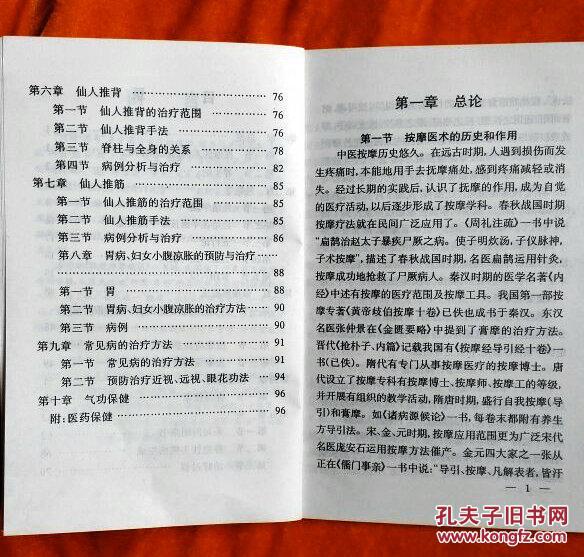 第六章　仙人推背 …………………… 76
第一节　仙人推背的治疗范围 …………… 76
第二节　仙人推背手法 …………… 76
第三节　脊柱与全身的关系 …………… 78
第四节　病例分析与治疗 …………… 82
第七章　仙人推筋 …………… 85
第一节　仙人推筋的治疗范围 …………… 85
第二节　仙人推筋手法 …………… 85
第三节　病例分析与治疗 …………… 86
第八章　胃病、妇女小腹凉胀的预防与治疗 ……
…………… 88
第一节　胃 …………… 88
第二节　胃病、妇女小腹凉胀的治疗方法 …… 90
第三节　病例 …………… 90
第九章　常见病的治疗方法 …………… 91
第一节　常见病的治疗方法 …………… 91
第二节　预防治疗近视、远视、眼花功法 …… 94
第十章　气功保健 …………… 96
附:医药保健 …………… 96
第一章　总论
第一节　按摩医术的历史和作用
中医按摩历史悠久。在远古时期,人遇到损伤而发
生疼痛时,本能地用手去抚摩痛处,感到疼痛减轻或消
失。经过长期的实践后,认识了抚摩的作用,成为自觉
的医疗活动,以后逐步形成了按摩学科。春秋战国时期
按摩疗法就在民间广泛应用了。《周礼注疏》一书中说
“扁鹊治赵太子暴疾尸厥之病。使子明炊汤,子仪脉神,
子术按摩”,描述了春秋战国时期,名医扁鹊运用针灸、
按摩成功地抢救了尸厥病人。秦汉时期的医学名著《内
经》中述有按摩的医疗范围及按摩工具。我国第一部按
摩专著《黄帝歧伯按摩十卷》已佚也成书于秦汉。东汉
名医张仲景在《金匮要略》中提到了膏摩的治疗方法。
晋代《抢朴子、内篇》记载我国有《按摩经导引经十卷》一
书(已佚)。隋代有专门从事按摩医疗的按摩博士。唐
代设立了按摩专科有按摩博士、按摩师、按摩工的等级,
并开展有组织的教学活动,隋唐时期,盛行自我按摩(导
引)和膏摩。如《诸病源候论》一书,每卷末都附有养生
方导引法。宋、金、元时期,按摩应用范围更为广泛宋代
名医庞安石运用按摩方法催产。金元四大家之一张从
正在《儒门事亲》一书中说:“导引、按摩、凡解表者,皆汗
— 1 —
孔夫子旧书网